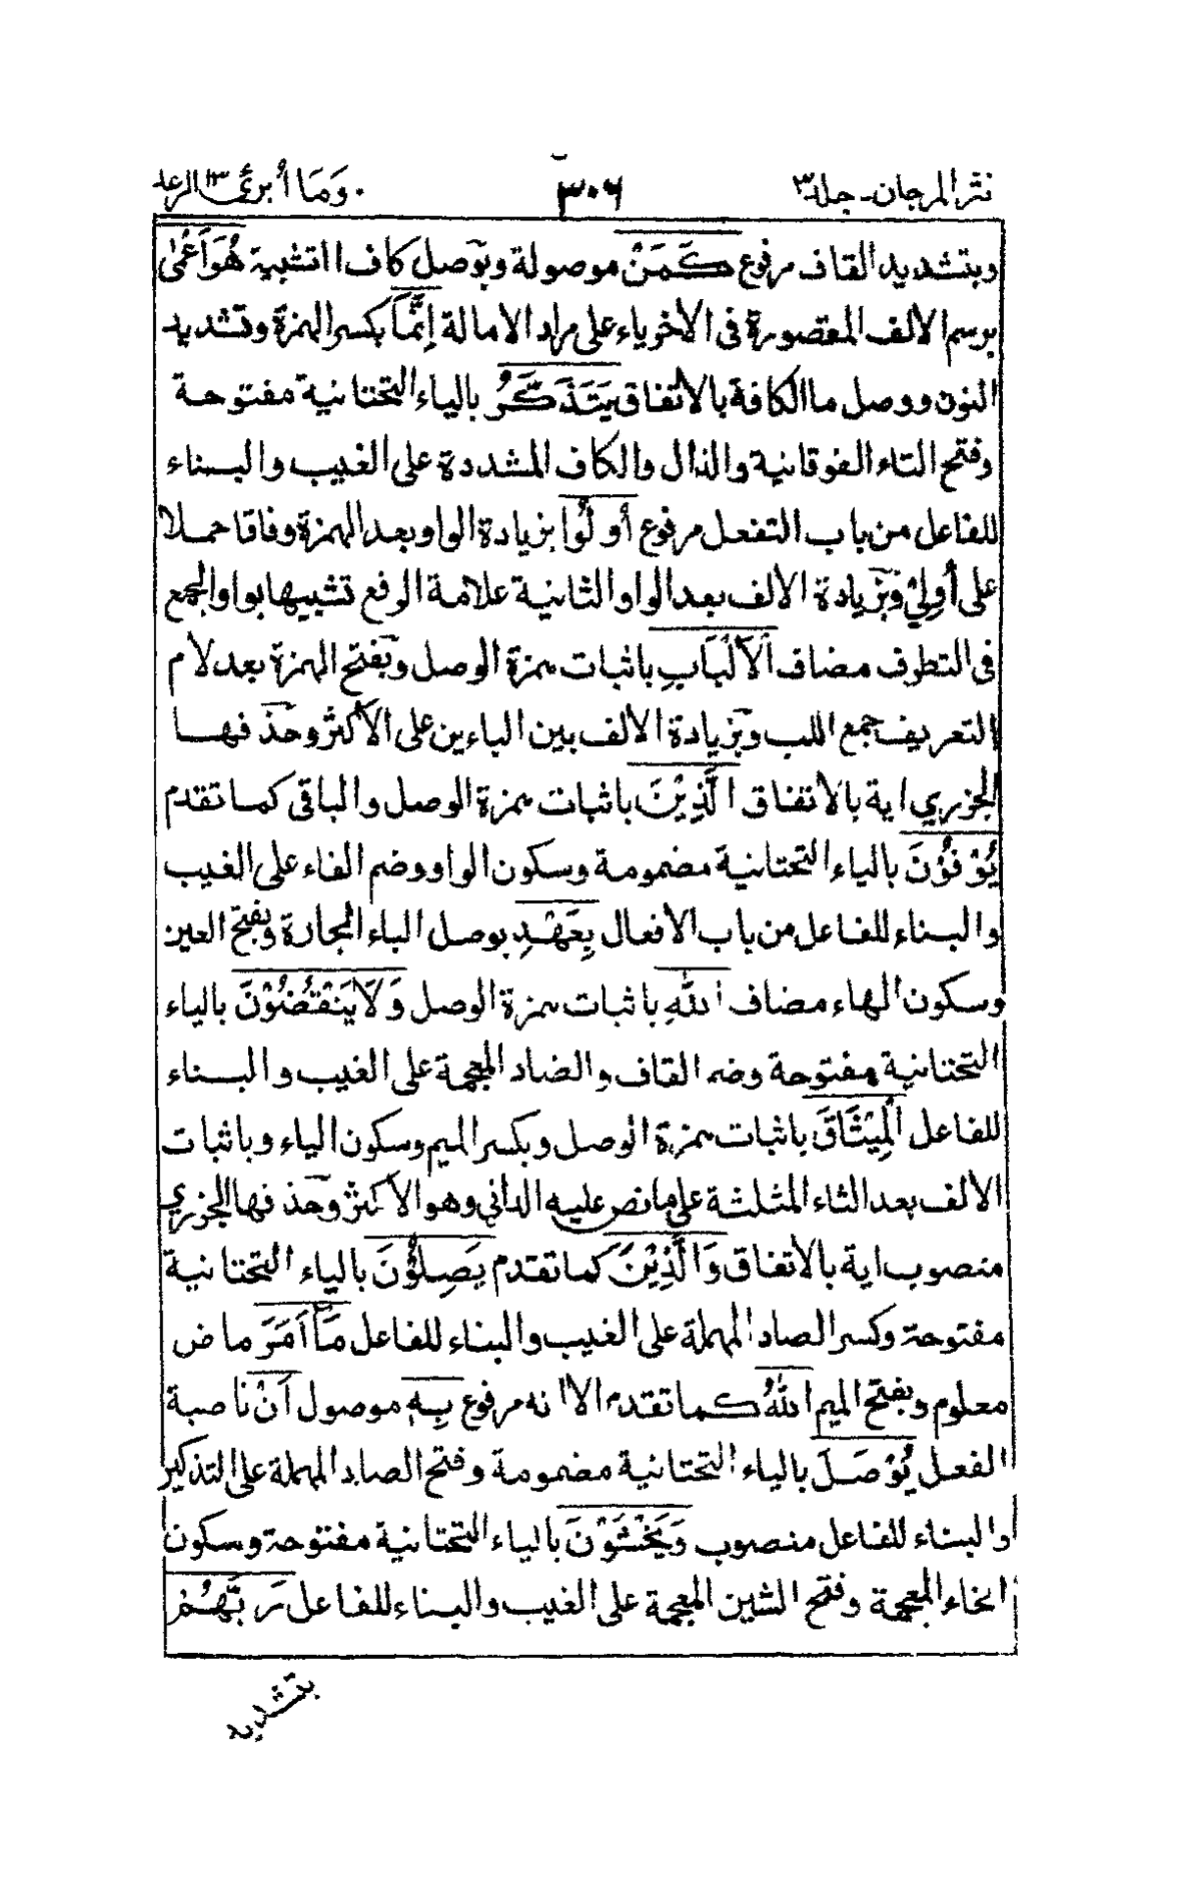 نثر المرجان - جلد ٣
٣٠٦
وَمَا أُبَرِّئُ ١٣ الرعد
وبتشديد القاف مرفوع كَمَنْ موصولة وبوصل كاف التشبيه هُوَ أَعْمٰى
برسم الالف المقصورة فى الاخرياء على مراد الامالة إِنَّمَا بكسر الهمزة وتشديد
النون ووصل ما الكافة بالاتفاق يَتَذَكَّرُ بالياء التحتانية مفتوحة
وفتح التاء الفوقانية والذال والكاف المشددة على الغيب والبناء
للفاعل من باب التفعل مرفوع أُولُوا بزيادة الواو بعد الهمزة وفاقا حملا
على أُولِيْ وبزيادة الالف بعد الواو الثانية علامة الرفع تشبيها بواو الجمع
فى التطرف مضاف الْأَلْبَابِ باثبات همزة الوصل وبفتح الهمزة بعد لام
التعريف جمع اللب وبزيادة الالف بين الباءين على الاكثر وحذفها
الجزري اية بالاتفاق الَّذِيْنَ باثبات همزة الوصل والباقى كما تقدم
يُوْفُوْنَ بالياء التحتانية مضمومة وسكون الواو وضم الفاء على الغيب
والبناء للفاعل من باب الافعال بِعَهْدِ بوصل الباء الجارة وبفتح العين
وسكون الهاء مضاف اللهِ باثبات همزة الوصل وَلَا يَنْقُضُوْنَ بالياء
التحتانية مفتوحة وضم القاف والضاد المعجمة على الغيب والبناء
للفاعل الْمِيْثَاقَ باثبات همزة الوصل وبكسر الميم وسكون الياء وباثبات
الالف بعد الثاء المثلثة على ما نص عليه الداني وهو الاكثر وحذفها الجزري
منصوب اية بالاتفاق وَالَّذِيْنَ كما تقدم يَصِلُوْنَ بالياء التحتانية
مفتوحة وكسر الصاد المهملة على الغيب والبناء للفاعل مَآ أَمَرَ ماض
معلوم وبفتح الميم اللهُ كما تقدم الا انه مرفوع بِهٖ موصول أَنْ ناصبة
الفعل يُوْصَلَ بالياء التحتانية مضمومة وفتح الصاد المهملة على التذكير
والبناء للفاعل منصوب وَيَخْشَوْنَ بالياء التحتانية مفتوحة وسكون
الخاء المعجمة وفتح الشين المعجمة على الغيب والبناء للفاعل رَبَّهُمْ
بتشديد